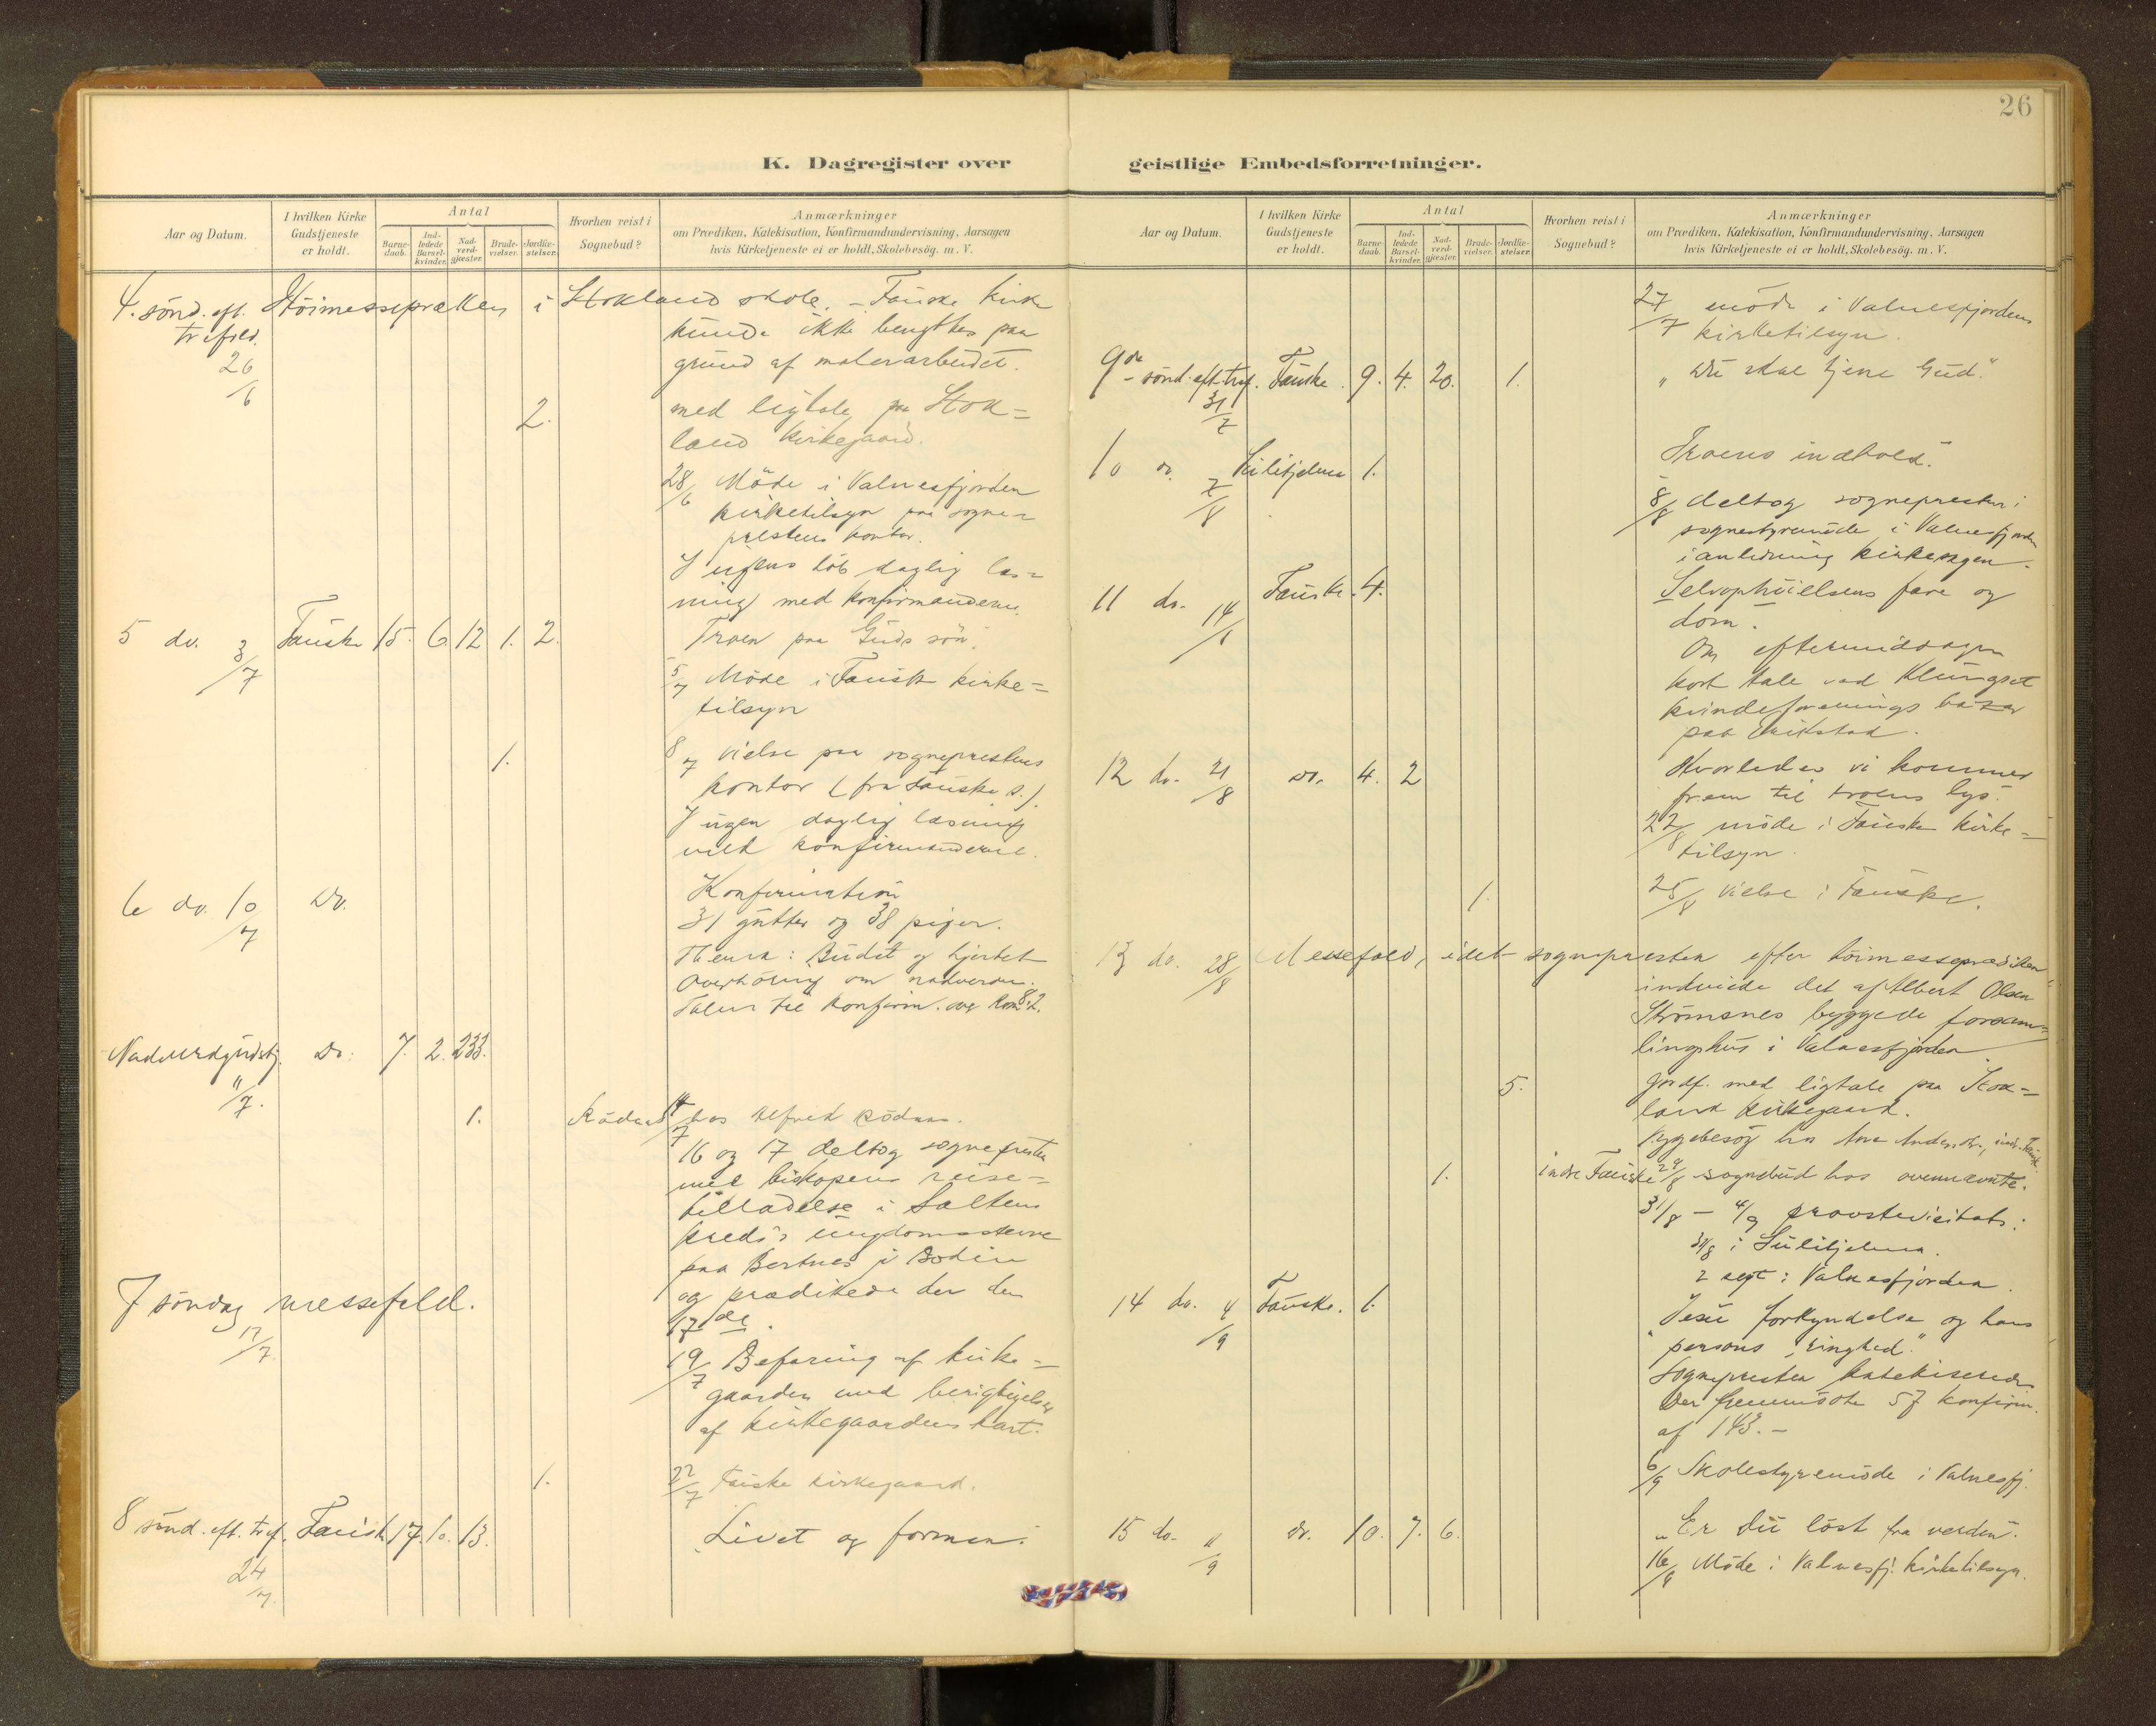 26
K. Dagregister over geistlige Embedsforretninger.
Aar og Datum.
I hvilken Kirke
Gudstjeneste
er holdt.
Antal
Barne-
daab.
Ind-
ledede
Barsel-
kvinder.
Nad-
verd-
gjæster.
Brude-
vielser.
Jordfæ-
stelser.
Hvorhen reist i
Sognebud?
Anmærkninger
om Prædiken, Katekisation, Konfirmandundervisning, Aarsagen
hvis Kirketjeneste ei er holdt, Skolebesög. m. V.
4. sönd. eft. Höimessepræken i Stokland skole. - Fauske kirke
trefold.
26/6
kunde ikke benyttes paa
grund af malerarbeidet.
2. med ligtale paa Stok=
land kirkegaard.
28/6 Möde i Valnesfjorden
kirketilsyn paa sogne=
prestens kontor.
I ugens löb daglig læs=
ning med konfirmanderne.
5 do. 3/7 Fauske 15. 6. 12 1. 2. Troen paa Guds sön.
5/7 Möde i Fauske kirke=
tilsyn
1. 8/7 vielse paa sogneprestens
kontor (fra Fauske s.).
I ugen daglig læsning
med konfirmanderne.
6 do. 10/7 Do. Konfirmation
31 gutter og 38 piger.
Thema: Budet og hjertet
Overhöring om nadveren.
Talen til konfirm. over Rom 8.2.
Nadverdgudstj. Do. 7. 2. 233.
11/7.
1. Rödaas 14/7 hos Alfred Rödaas.
16 og 17 deltog sognepresten
med biskopens reise=
tilladelse i Saltens
kreds's ungdomsstevne
paa Bertnes i Bodin
og prædikede der den
17de.
7 söndag messefald.
17/7
19/7 Befaring af kirke=
gaarden med berigtigelse
af kirkegaardens kart.
1. 22/7 Fauske kirkegaard.
8 sönd. eft. tref. Fauske 17. 10. 13. Livet og formen.
24/7
Aar og Datum.
I hvilken Kirke
Gudstjeneste
er holdt.
Antal
Barne-
daab.
Ind-
ledede
Barsel-
kvinder.
Nad-
verd-
gjæster.
Brude-
vielser.
Jordfæ-
stelser.
Hvorhen reist i
Sognebud?
Anmærkninger
om Prædiken, Katekisation, Konfirmandundervisning, Aarsagen
hvis Kirketjeneste ei er holdt, Skolebesög. m. V.
27/7 möde i Valnesfjordens
kirketilsyn.
9de sönd. eft. tref. Fauske. 9. 4. 20. 1. „Du skal tjene Gud."
31/7
10 do. 7/8 Sulitjelma 1. Troens indhold.
8/8 deltog sognepresten i
sognestyremöde i Valnesfjorden
i anledning kirkesagen.
11 do. 14/8 Fauske. 4. Selvophöielsens fare og
dom.
Om eftermiddagen
kort tale ved Klungset
kvindeforenings bazar
paa Erikstad.
12 do. 21/8 Do. 4. 2 Hvorledes vi kommer
frem til troens lys.
22/8 möde i Fauske kirke=
tilsyn.
1. 25/8 Vielse i Fauske.
13 do. 28/8 Messefald, idet sognepresten efter höimesseprædiken
indviede det af Albert Olsen
Strömsnes byggede forsam=
lingshus i Valnesfjorden.
5. Jordf. med ligtale paa Stok=
land kirkegaard.
1. indre Fauske 29/8 sognebud hos ovennævnte.
31/8 - 4/9 provstevisitats:
31/8 i Sulitjelma.
2 sept: Valnesfjorden.
14 do. 4/9 Fauske. 1. Jesu forkyndelse og hans
persons „ringhed."
Sognepresten katekiserede
Der fremmödte 57 konfirm.
af 143. -
6/9 Skolestyremöde i Valnesfj.
15 do. 11/9 do. 10. 7. 6. „Er du löst fra verden".
16/9 Möde i Valnesfj. kirketilsyn.